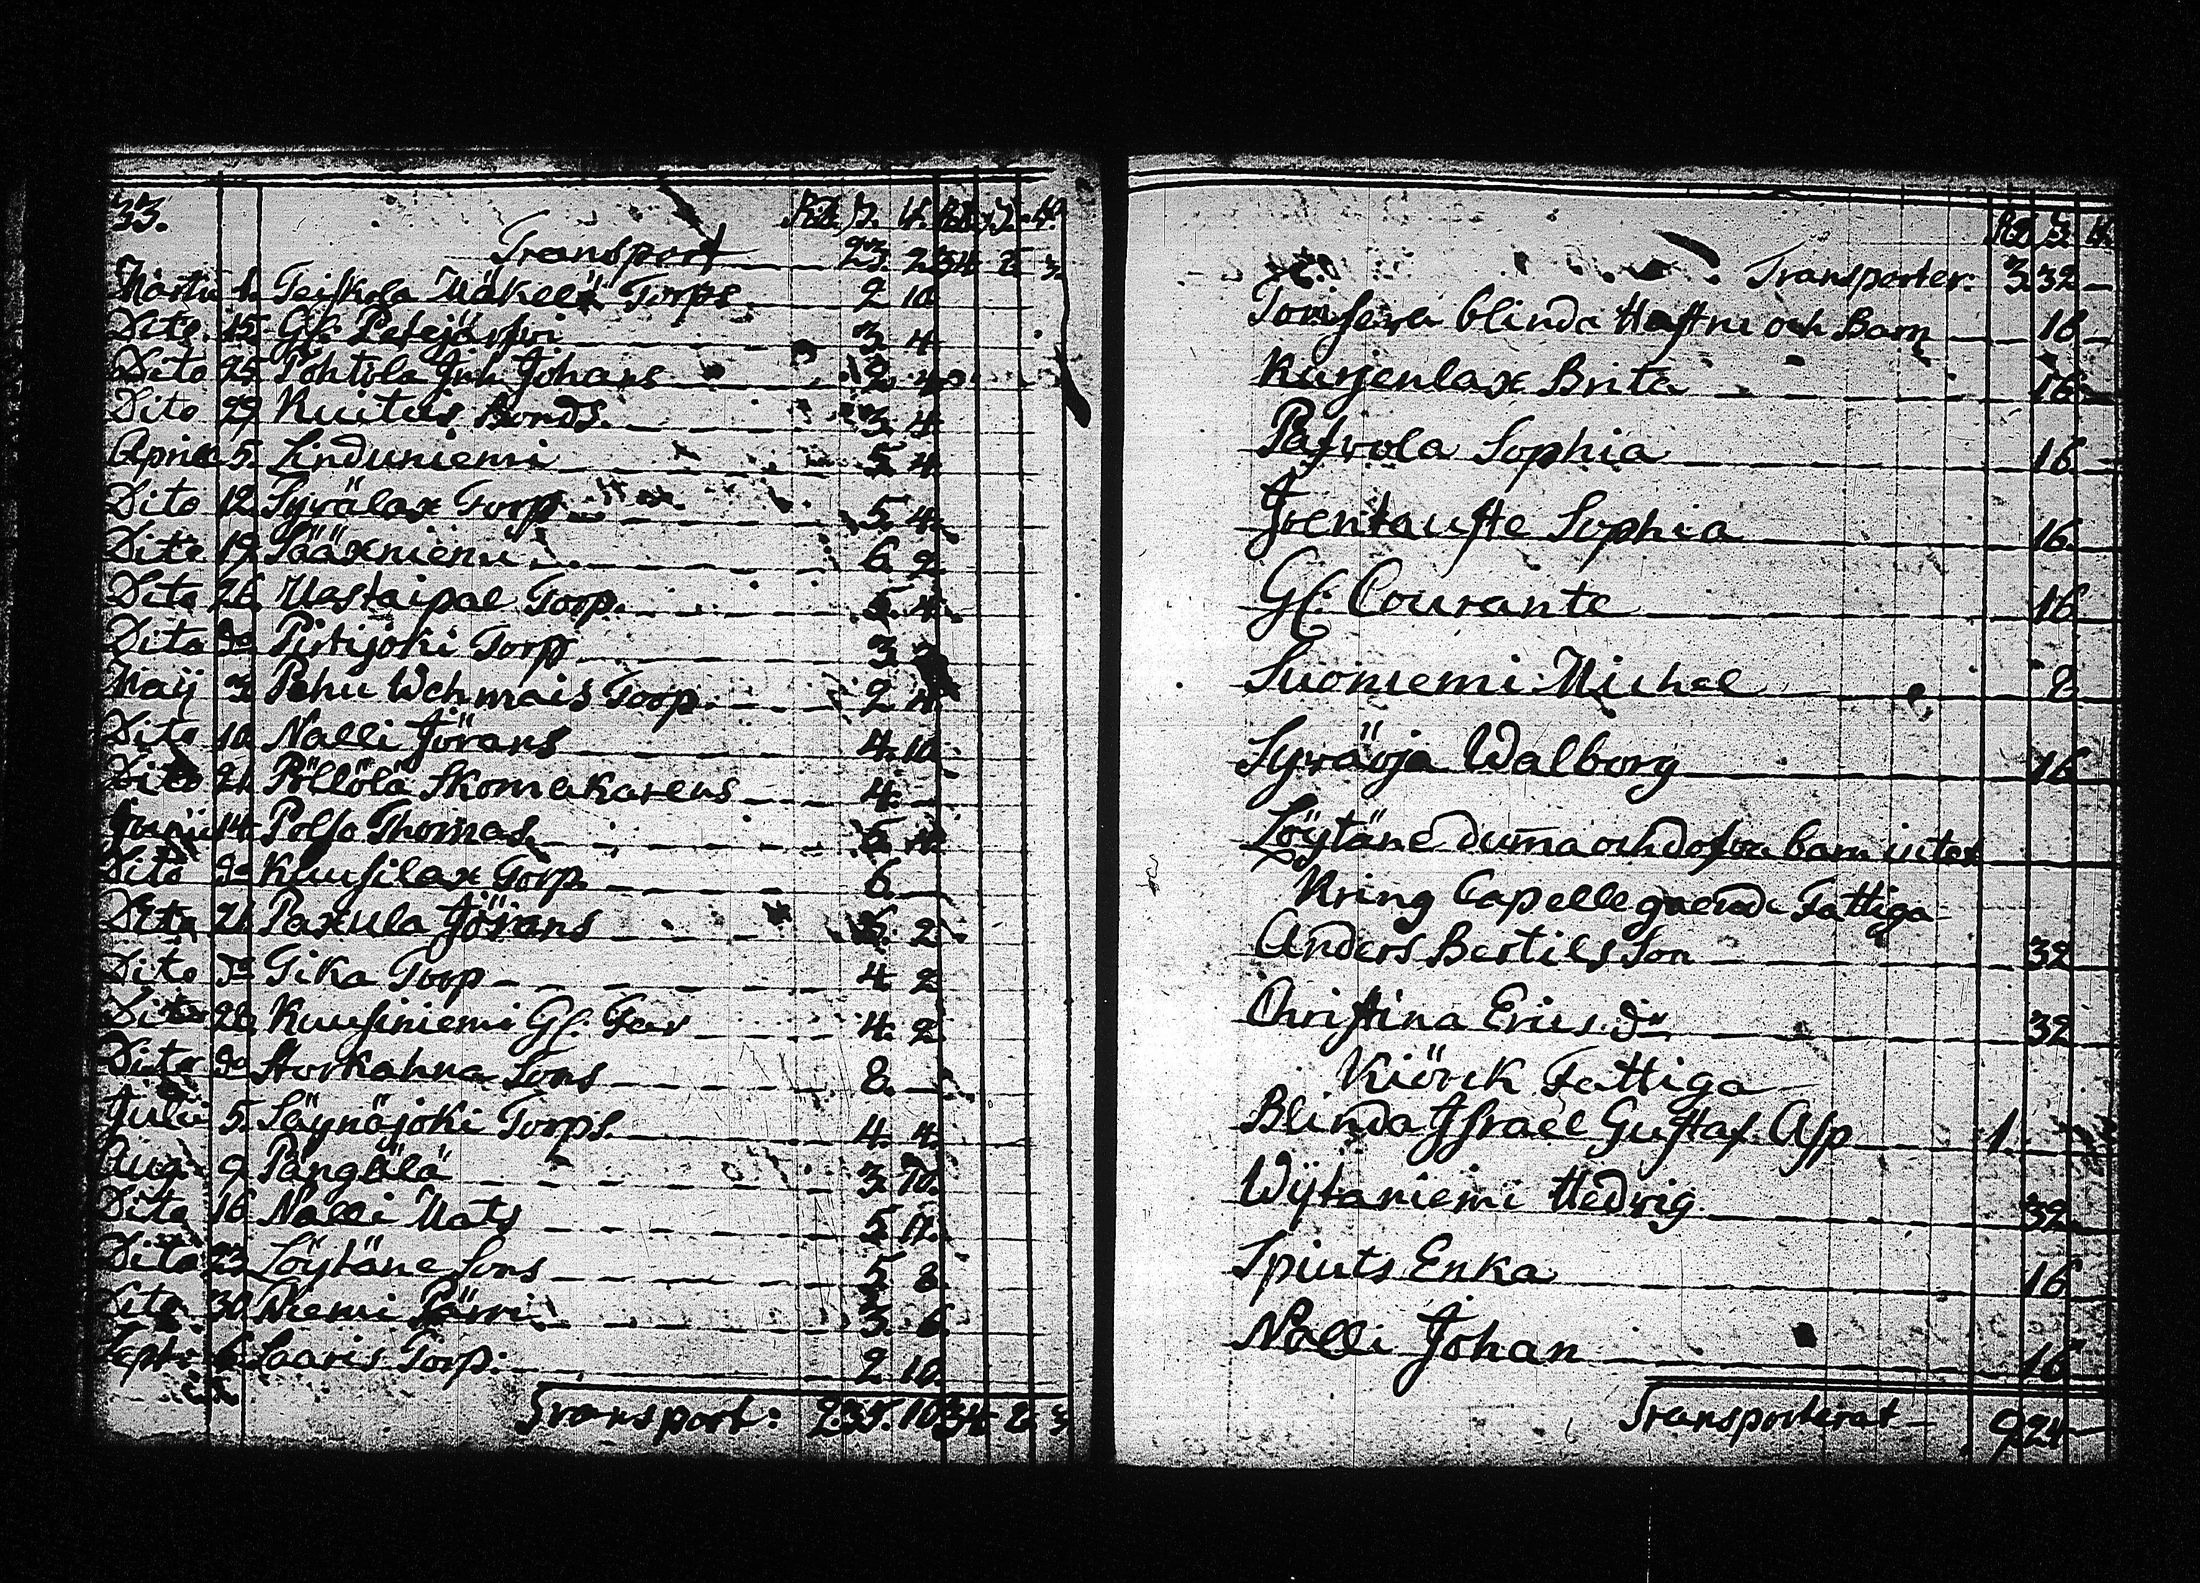 33. Rd. S. 4. Rd. S. 4.
Transport 23. 2 34 8 3
Martii 1. Teiskola Mäkelä Torps 2 10
Dito 15. Gf. Petejärfvi 3 4
Dito 25. Pohtola Joh Johans 2 4
Dito 29 Kuitus Bonds. 3 4
April 5. Linduniemi 5 4
Dito 12 Syrälax Torp 5. 4
Dito 19. Sääxniemi 6 2
Dito 26. Uestaipal Torp. 5 4.
Dito do Pirtijoki Torp 3
Maij 3 Pehu Wehmais Torp. 2 4
Dito 10 Nalli Jörans 4. 10
Dito 21. Pöllölä Skomakarens 4. —
Junii 14. Polso Thomas 5 4
Dito do Kuusilax Torp. 6 —
Dito 21. Paxula Jörans 5. 2
Dito do Tika Torp 4 2
Dito 28. Kuusiniemi Gf. Far 4. 2
Dito do Storkahra Sons 8. —
Julii 5. Säynäjoki Torps. 4. 4.
Aug. 9 Pängälä 3. 10.
Dito 16 Nalli Mats 5 11.
Dito 23. Löytäne Sons 5 8
Dito 30 Niemi Pärri 3. 6.
Septr. 6. Laaris Torp. 2 10.
Transport: 2 35. 10 34 8 3
Rd S 4
Transporter. 3. 32 —
blinda Hustru och Barn 16 —
Kurjenlax Brita 16 —
Pafvola Sophia 16 —
Sophia 16.
Gf. Courante 16
Suoniemi Michel 8
Syräoja Walborg 16
Löytäne duma och dofva barn intet
Kring Capellegående Fattiga
Anders Bertils Son 32
Christina Erics dr 32
Kiörck Fattiga
Blinda Israel Gustaf Asp 1.
Wijtaniemi Hedvig 32
Spiuts Enka 16
Nalli Johan 16
Transporterat 9 24 —